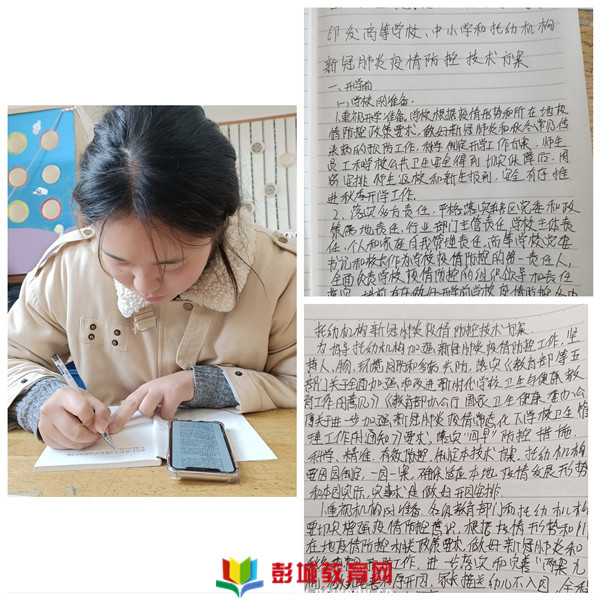 印发高等学校、中小学和托幼机构
新冠肺炎疫情防控技术方案
一、开学前
(一)学校的准备.
1.重视开学准备.学校根据疫情形势和所在地疫
情防控政策要求,做好新冠肺炎和秋冬季传
染病的预防工作,科学制定开学工作方案,师生
员工和学校公共卫生安全得到切实保障后,周
密安排师生返校和新生报到,安全有序推
进秋季开学工作.
2、落实各方责任.严格落实辖区党委和政
府属地责任,行业部门主管责任,学校主体责
任,个人和家庭自我管理责任,高等学校党委
书记和校长作为学校疫情防控的第一责任人,
全面负责学校疫情防控的组织领导和责任
托幼机构新冠肺炎疫情防控技术方案.
为指导托幼机构加强新冠肺炎疫情防控工作,坚
持人、物、环境同防和多病共防,落实《教育部等五
部门关于全面加强和改进新时代学校卫生与健康教
育工作的意见》《教育部办公厅 国家卫生健康委办公
厅关于进一步加强新冠肺炎疫情常态化下学校卫生管
理工作的通知》要求,落实"四早"防控措施,
科学、精准、有效防控,制定本技术方案.托幼机构
要因园制宜,一园一案,确保结合本地疫情发展形势
和本园实际,实事求是做好开园安排.
1.重视机构的准备.各级教育部门和托幼机构
要切实增强疫情防控意识,根据疫情形势和所
在地疫情防控相关政策要求,做好新冠肺炎和
彭城教育网